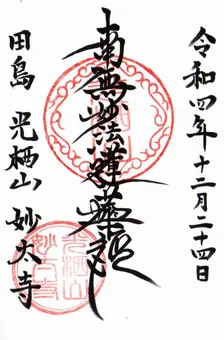 令和四年十二月二十四日
南無妙法蓮華経
田島 光栖山 妙大寺
光栖山妙大寺